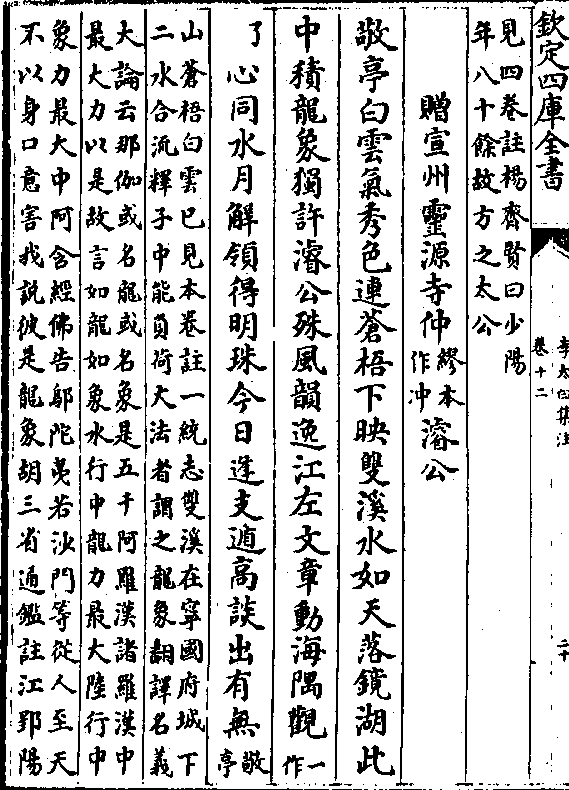 欽定四庫全書
李太白集注
卷十二
二十
見四卷註楊齊賢曰少陽
年八十餘故方之太公
贈宣州靈源寺仲繆本作沖濬公
敬亭白雲氣秀色連蒼梧下映雙溪水如天落鏡湖此
中積龍象獨許濬公殊風韻逸江左文章動海隅觀一作
了心同水月解領得明珠今日逢支遁高談出有無敬亭
山蒼梧白雲已見本卷註一統志雙溪在寧國府城下
二水合流釋子中能負荷大法者謂之龍象翻譯名義
大論云那伽或名龍或名象是五千阿羅漢諸羅漢中
最大力以是故言如龍如象水行中龍力最大陸行中
象力最大中阿含經佛告鄔陀夷若沙門等從人至天
不以身口意害我說彼是龍象胡三省通鑑註江郢陽